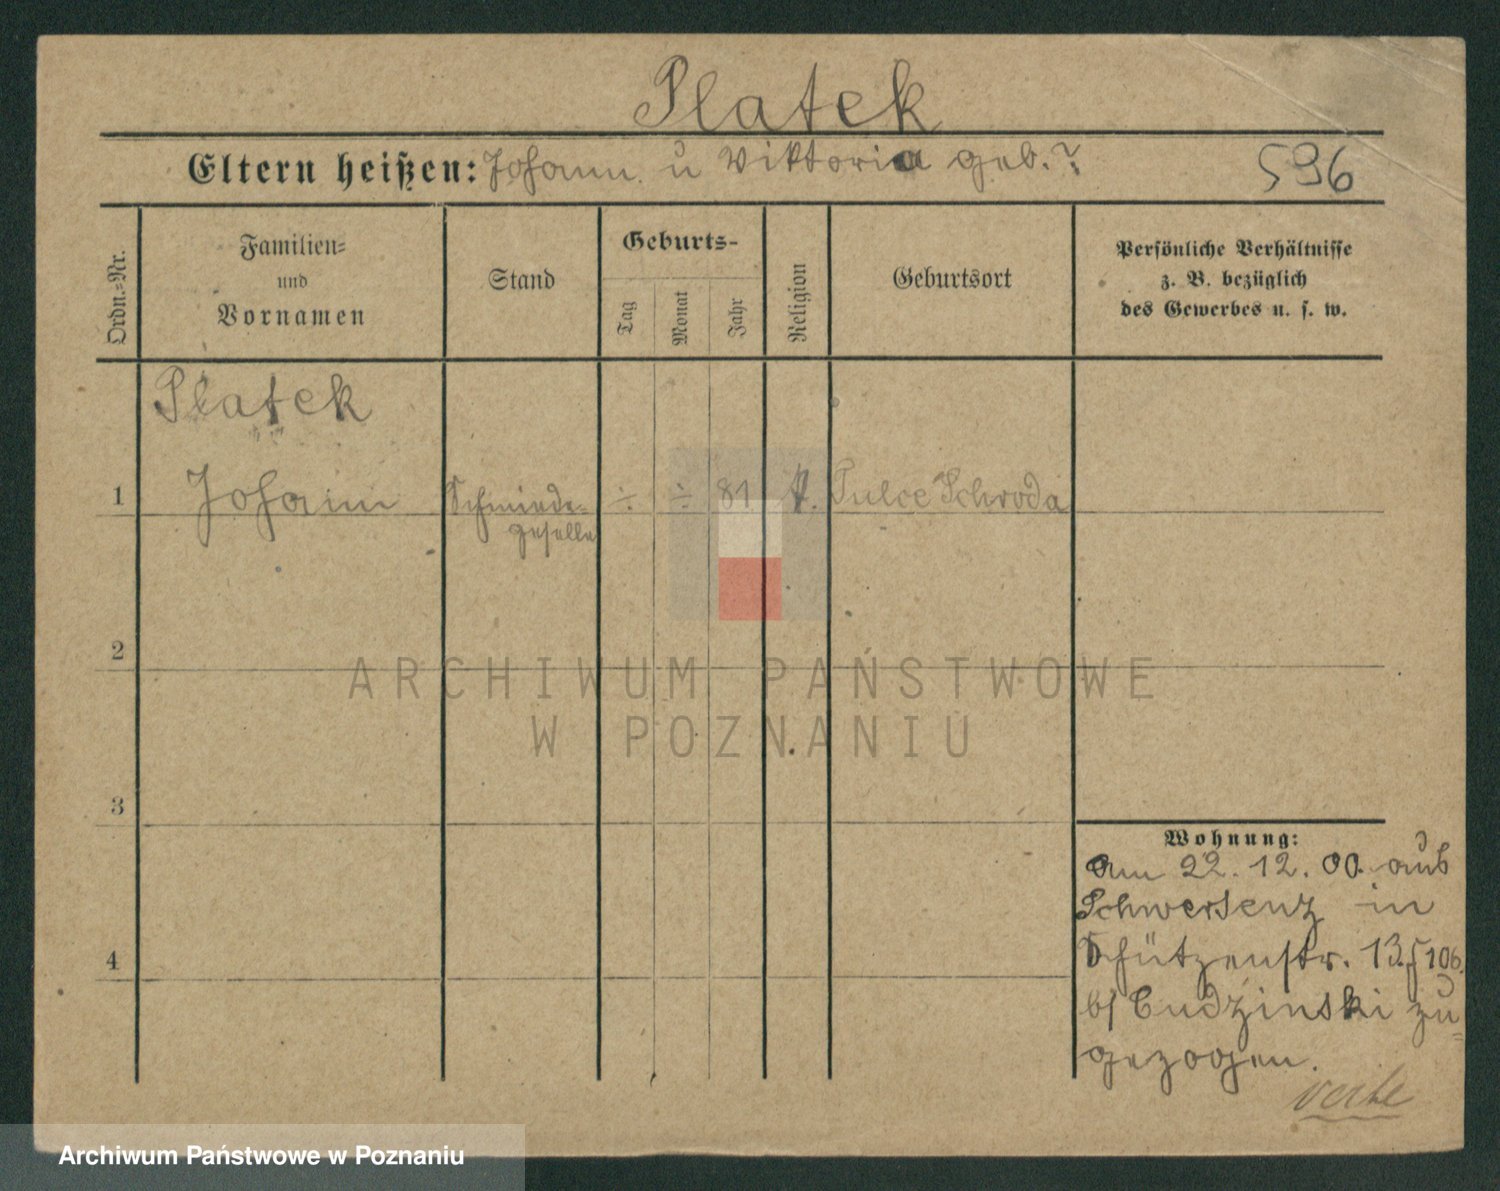 Platek
Eltern heißen: Johann u Viktoria geb. ?
596
Ordn.=Nr.
Familien=
und
Vornamen
Stand
Geburts-
Tag
Monat
Jahr
Religion
Geburtsort
Persönliche Verhältnisse
z. B. bezüglich
des Gewerbes u. s. w.
Platek
1 Johann Schmiede- ÷ ÷ 81 k. Pulce Schroda
geselle
2
3
4
Wohnung:
am 22.12.00. aus
Schwersenz in
Schützenstr. 13
b/ Cudzinski zu=
gezogen.
ARCHIWUM PAŃSTWOWE
W POZNANIU
Archiwum Państwowe w Poznaniu